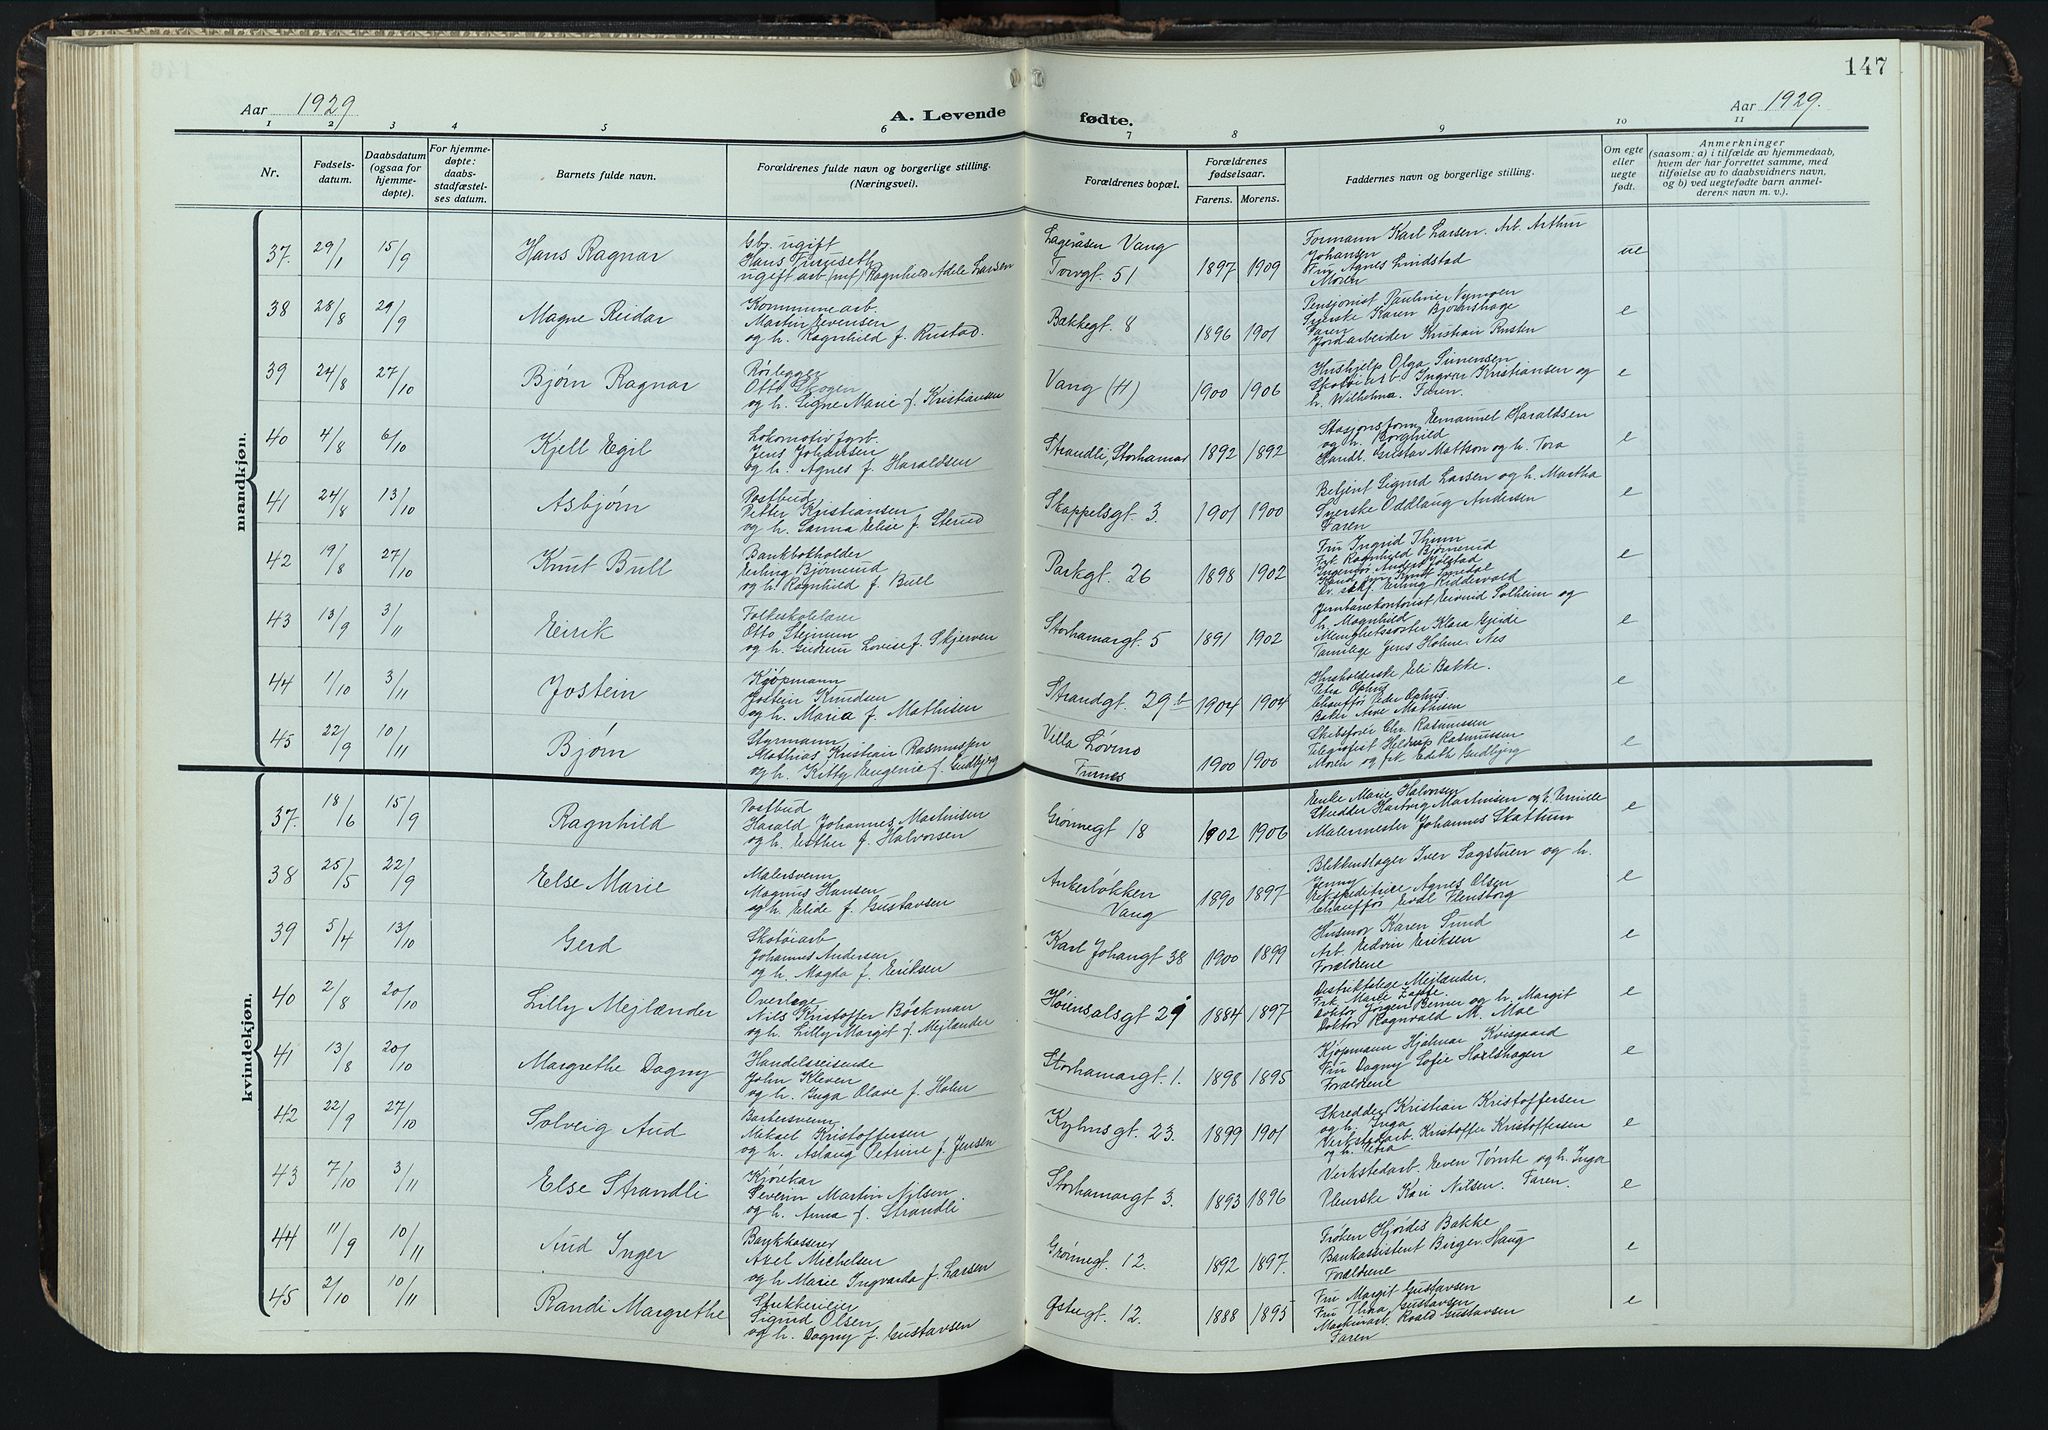 147
Aar 1929
A. Levende fødte.
Aar 1929.
1 2 3 4 5 6 7 8 9 10 11
Nr.
Fødsels-
datum.
Daabsdatum
(ogsaa for
hjemme-
døpte).
For hjemme-
døpte:
daabs-
stadfæstel-
ses datum.
Barnets fulde navn.
Forældrenes fulde navn og borgerlige stilling.
(Næringsvei).
Forældrenes bopæl.
Forældrenes
fødselsaar.
Farens. Morens.
Faddernes navn og borgerlige stilling.
Om egte
eller
uegte
født.
Anmerkninger
(saasom: a) i tilfælde av hjemmedaab,
hvem der har forrettet samme, med
tilføielse av to daabsvidners navn,
og b) ved uegtefødte barn anmel-
derens navn m. v.).
mandkjøn.
37. 29/1 15/9 Hans Ragnar
Gbr. ugift
Hans Furuseth
ugift arb (mf) Ragnhild Adele Larsen
Lageråsen Vang
Torvgt. 51
1897 1909
Formann Karl Larsen. Arb. Arthur
Johansen
Fru Agnes Lindstad
Moren
ue
38 28/8 29/9 Magne Reidar
Kommunearb.
Martin Evensen
og h. Ragnhild f. Rustad.
Bakkegt. 8
1896 1901
Pensjonist Pauline Nymoen
Syerske Karen Bjørnshage
Faren
Jordarbeider Kristian Rusten
e
39 24/8 27/10 Bjørn Ragnar
Rørlegger
Otto Skogen
og h. Signe Marie f. Kristiansen
Vang (H)
1900 1906
Hushjelp Olga Simensen
Skotøiarb. Ingvar Kristiansen og
h. Wilhelma. Faren.
e
40 4/8 6/10 Kjell Egil
Lokomotivfyrb.
Jens Johansen
og h. Agnes f. Haraldsen
Strandli, Storhamar
1892 1892
Stasjonsform. Emanuel Haraldsen
og h. Borghild
Handl. Gustav Matson og h. Tora
e
41 24/8 13/10 Asbjørn
Postbud
Petter Kristiansen
og h. Sanna Elise f. Sterud
Skappelsgt. 3.
1901 1900
Betjent Sigurd Larsen og h. Martha
Syerske Oddlaug Andersen
Faren
e
42 19/8 27/10 Knut Bull
Bankbokholder
Erling Bjørnerud
og h. Ragnhild f. Bull
Parkgt. 26
1898 1902
Fru Ingrid Thum
Frk. Ragnhild Bjørnerud
Ingeniør Anders Jølstad
Kand. jur. Knut
Erling Ridderwold
e
43 13/9 3/11 Eirik
Folkeskolelærer
Otto Steinum
og h. Gudrun Lovise f. Skjerven
Storhamargt. 5
1891 1902
Jernbanekontorist Eivind Solheim og
h. Magnhild
Menighetssøster Klara Gjeide
Tannlege Jens Holme. Nes
e
44 1/10 3/11 Jostein
Kjøpmann
Jostein Knudsen
og h. Maria f. Mathisen
Strandgt. 29 b
1904 1904
Husholderske Eli Bakke.
Petra Ophus
Chauffør Peder Ophus.
Baker Arne Mathisen
e
45 22/9 10/11 Bjørn
Styrmann
Mathias Kristian Rasmussen
og h. Kitty Eugenie f. Gudbjørg
Villa Løvmo
Furnes
1900 1900
Skibsfører Chr. Rasmussen
Telegrafist Rasmussen
Moren og frk Edith Gudbjørg
e
kvindekjøn.
37. 18/6 15/9 Ragnhild
Postbud
Harald Johannes Martinsen
og h. Esther f. Halvorsen
Grønnegt 18
1902 1906
Enke Marie Halvorsen
Skredder Hartvig Martinsen og h. Pernille
Malermester Johannes Skattum
e
38 25/5 22/9 Else Marie
Malersvenn
Magnus Hansen
og h. Elide f. Gustavsen
Ankerløkken
Vang
1890 1897
Blikkenslager Iver Sagstuen og h.
Jenny
Ekspeditrice Agnes Olsen
Chauffør Flensborg
e
39 5/4 13/10 Gerd
Skotøiarb
Johannes Andersen
og h. Magda f. Eriksen
Karl Johangt 38
1900 1899
Husmor Karen Sund
Arb. Edvin Eriksen
Forældrene
e
40 2/8 20/10 Lilly Mejlænder
Overlæge
Nils Kristoffer Bøckman
og h. Lilly Margit f. Mejlænder
Høiensalsgt 29
1884 1897
Distriktslege Mejlænder.
Frk. Marie Zappe.
Doktor Jørgen Berner og h. Margit
Doktor Ragnvald M. Moe
e
41 13/8 20/10 Margrethe Dagny
Handelsreisende
John Kleven
og h. Inga Olave f. Holm
Storhamargt. 1.
1898 1895
Kjøpmann Hjalmar Kvisgaard
Fru Dagny Sofie Horlshagen
Forældrene
e
42 22/9 27/10 Solveig Aud
Barbersvenn
Mikael Kristoffersen
og h. Aslaug Petrine f. Jensen
Kyhnsgt. 23.
1899 1901
Skredder Kristian Kristoffersen
og h. Inga
Verkstedarb. Kristoffer Kristoffersen
og h. Petra
e
43 7/10 3/11 Else Strandli
Kjørekar
Severin Martin Nilsen.
og h. Anna f. Strandli
Storhamargt 3.
1893 1896
Verkstedarb. Even Tømte og h. Inga
Pleierske Kari Nilsen. Faren.
e
44 11/9 10/11 Aud Inger
Bankkasserer
Axel Michelsen
og h. Marie Ingvarda f. Larsen
Grønnegt. 12.
1892 1897.
Frøken Hjørdis Bakke
Bankassistent Birger Haug
Forældrene
e
45 2/10 10/11 Randi Margrethe
Sigurd Olsen
og h. Dagny f. Gustavsen
Østregt. 12.
1888 1895
Fru Margit Gustavsen
Fru Thea Gustavsen
Maskinarb. Roald Gustavsen
Faren
e